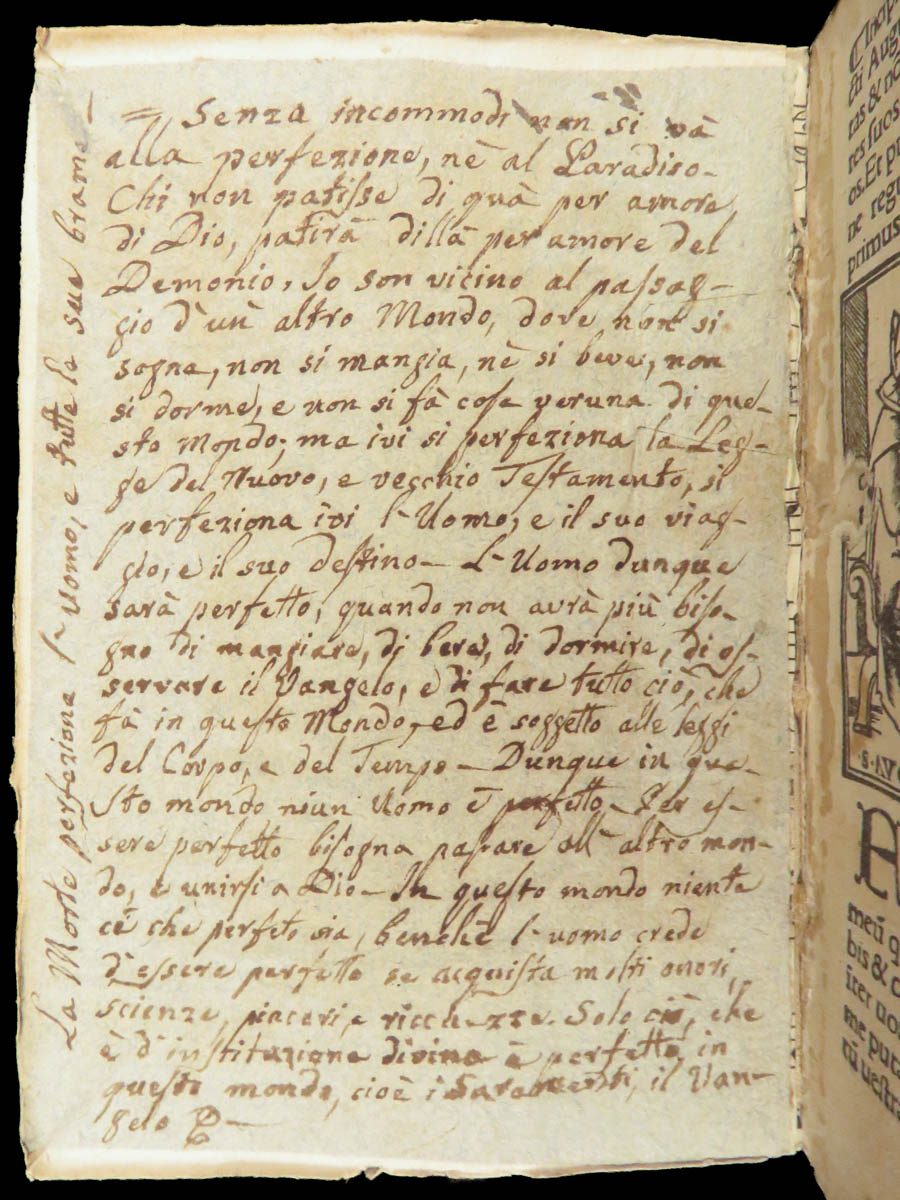 = Senza incommodi non si và
alla perfezione, nè al Paradiso-
Chi non patisse di quà per amore
di Dio, patirà dillà per amore del
Demonio, Io son vicino al passag-
gio d'un altro Mondo, dove non si
sogna, non si mangia, nè si beve, non
si dorme, e non si fà cosa veruna di que-
sto Mondo; ma ivi si perfeziona la Leg-
ge del Nuovo, e vecchio Testamento, si
perfeziona ivi l'Uomo, e il suo viag-
gio, e il suo destino- L'Uomo dunque
sarà perfetto, quando non avrà più biso-
gno di mangiare, di bere, di dormire, di os-
servare il Vangelo, e di fare tutto ciò, che
fà in questo Mondo, ed è soggetto alle leggi
del Corpo, e del Tempo- Dunque in que-
sto mondo niun Uomo è perfetto- Per es-
sere perfetto bisogna passare all'altro mon-
do, e unirsi a Dio- In questo mondo niente
c'è che perfeto sia, benchè l'uomo crede
d'essere perfetto se acquista molti onori,
scienze, piaceri, e ricchezze. Solo ciò, che
è d'instituzione divina è perfetto in
questo mondo, cioè i Saramenti, il Van-
gelo
La Morte perfeziona l'uomo, e tutte le sue brame-
primus
meū
bis &